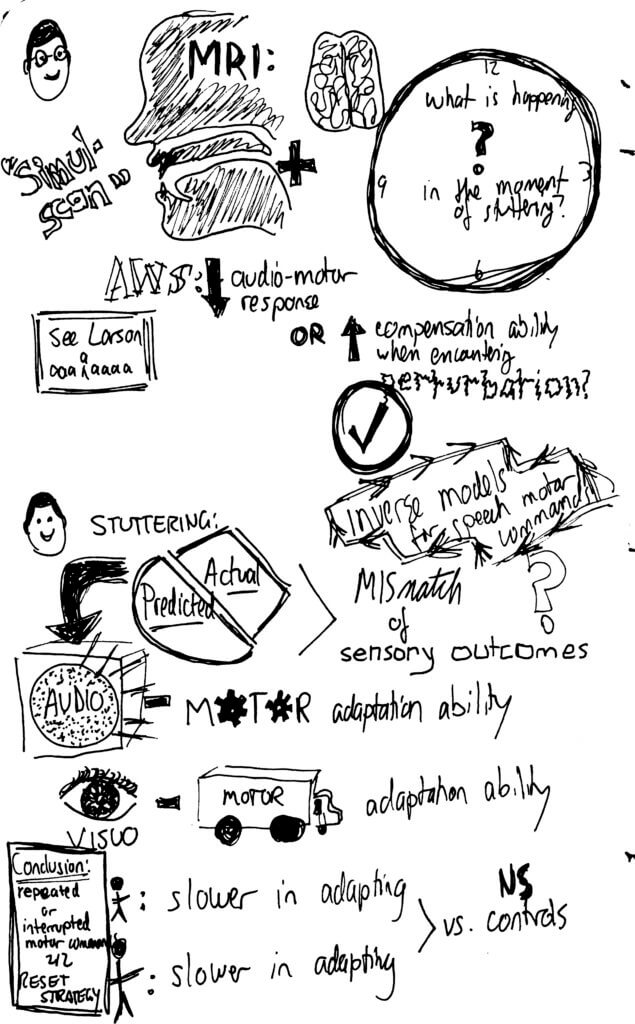 MRI:
"Simul-
scan"
+
12
what is happening
?
9
3
in the moment
of stuttering?
6
AWS: ↓ audio-motor
response
OR ↑ compensation ability
when encountering
perturbation?
See Larson
a
aaaaaaaa
✓
Inverse models
for speech motor
commands
STUTTERING:
Actual
Predicted
>
MISmatch
of
sensory outcomes
?
AUDIO - MOTOR adaptation ability
VISUO - MOTOR adaptation ability
Conclusion:
repeated
or
interrupted
motor commands
RESET
STRATEGY
: slower in adapting
: slower in adapting
> vs. controls
NS